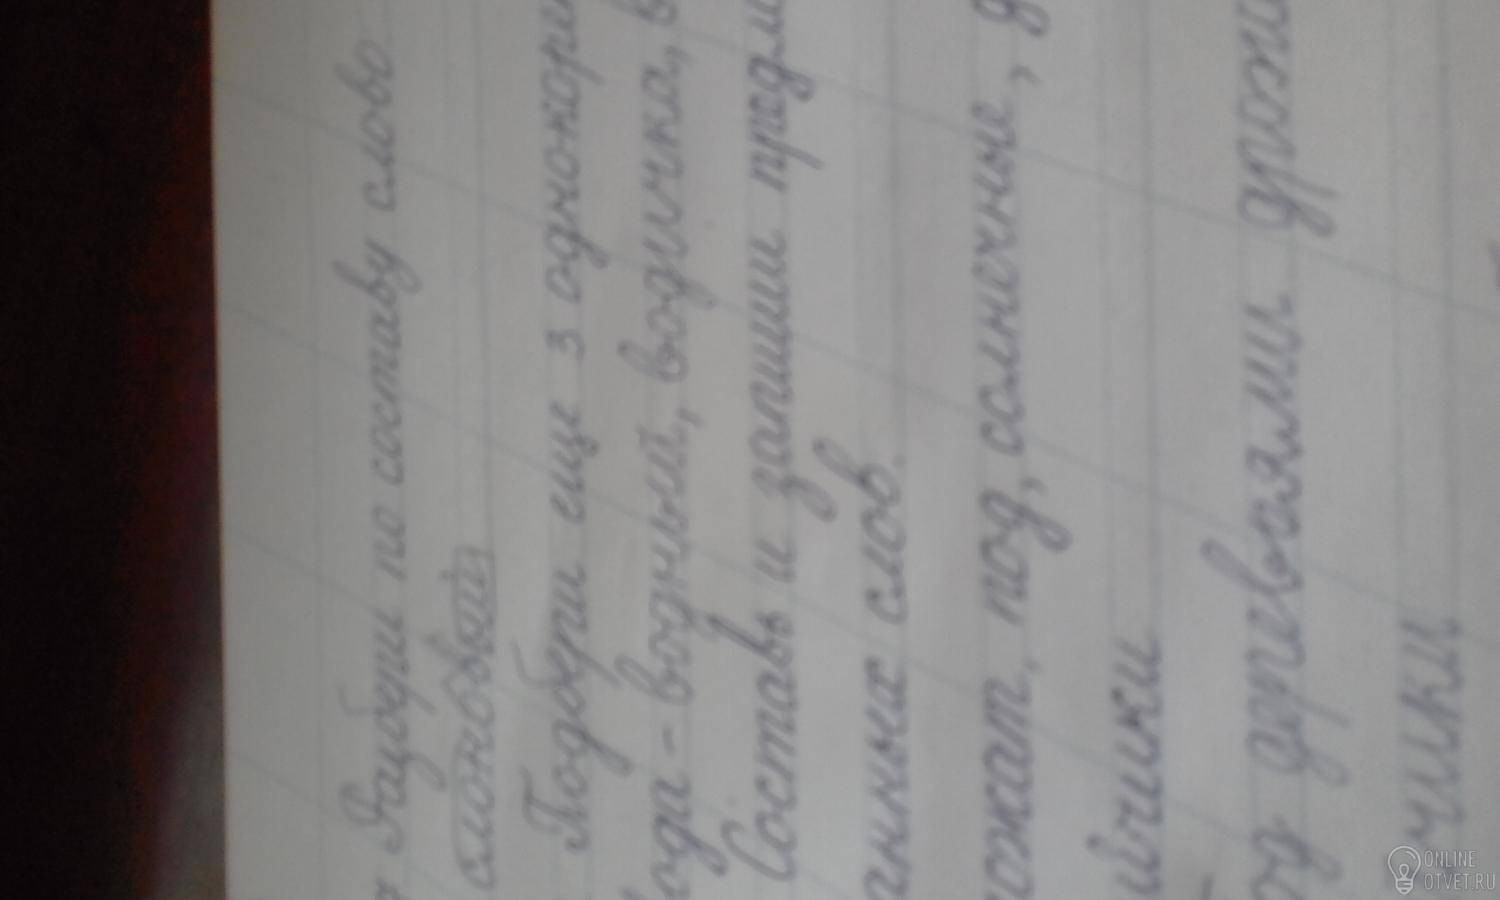 Разбери по составу слово
слоновый
Подбери еще 3 однокорен
ода - водный, водичка, в
Составь и запиши предл
анных слов.
ожат, под, солнечные, д
йчики
од деревьями дрожа
чики
ONLINE
OTVET.RU